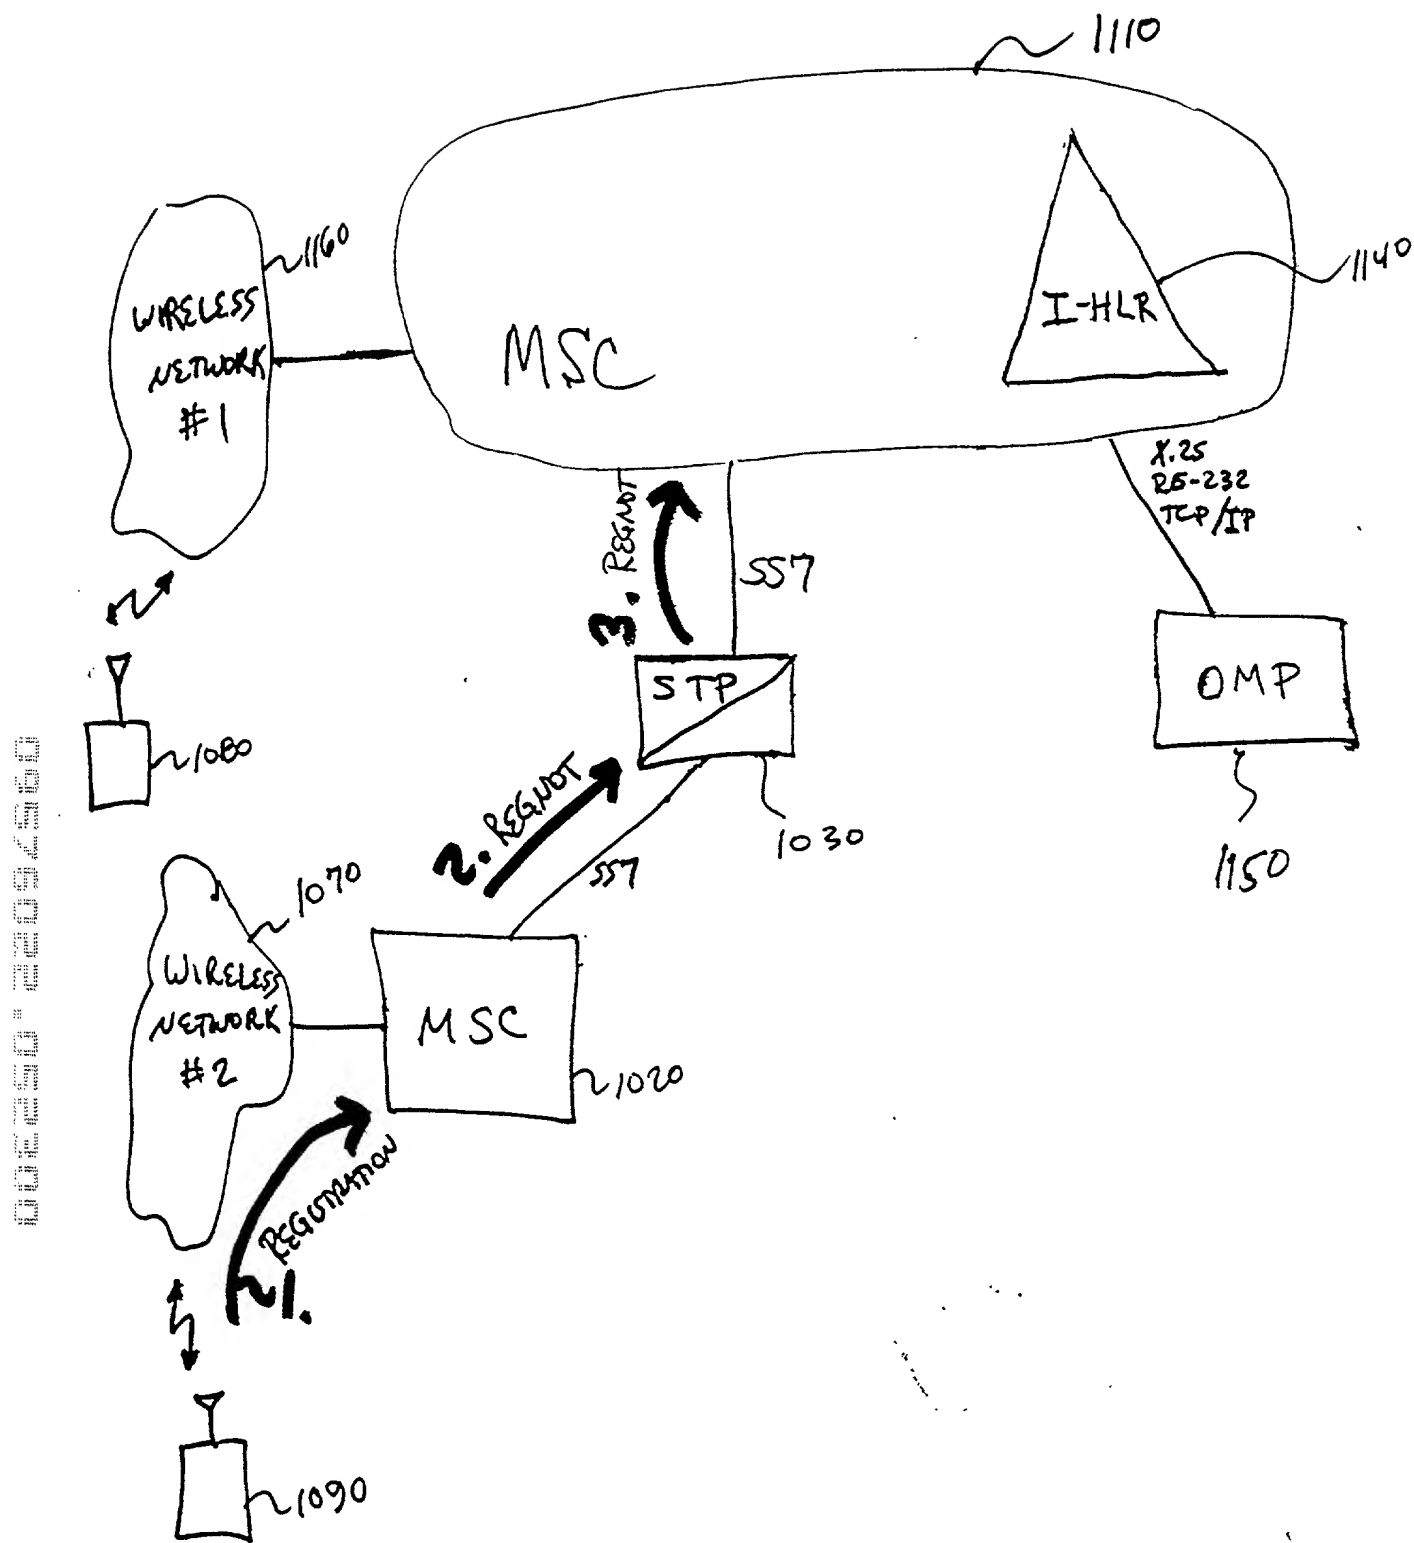 1110
1160
WIRELESS
NETWORK
#1
MSC
I-HLR
1140
X.25
RS-232
TCP/IP
3. REGNOT
SS7
STP
OMP
1080
1030
1150
2. REGNOT
SS7
1070
WIRELESS
NETWORK
#2
MSC
1020
REGISTRATION
1.
1090